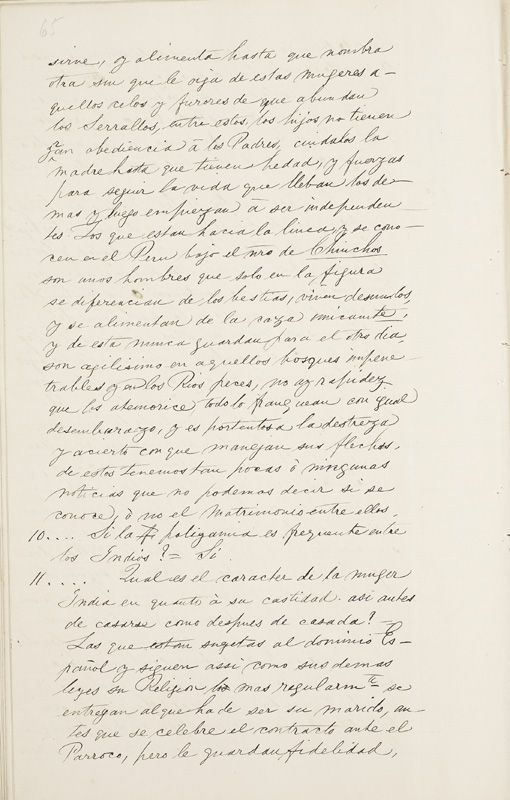 65
sirve, y alimenta hasta que nombra
otra sin que le oiga de estas mugeres a-
quellos celos y furores de que abundan
los Serrallos, entre estos, los hijos no tienen
gran obediencia á los Padres, cuidalos la
madre hasta que tienen hedad, y fuerzas
para seguir la vida que lleban los de-
mas y luego empiezan á ser independen
tes. Los que estan hacia la linea, y se cono-
cen en el Peru bajo el nro de Chunchos
son unos hombres que solo en la figura
se diferencian de los bestias, viven desnudos,
y se alimentan de la caza unicamte,
y de esta nunca guardan para el otro dia,
son agilisimo en aquellos bosques impene-
trables y en los Rios peces, no ay rapidez
que les atemorice, todo lo franquean con igual
desembarazo, y es portentosa la destreza
y acierto con que manejan sus flechas,
de estos tenemos tan pocas ó ningunas
noticias que no podemos decir si se
conoce, ó no el Matrimonio entre ellos.
10.... Si la poligamia es frequente entre
los Indios? = Si
11.... Qual es el caracter de la muger
India en quanto á su castidad. asi antes
de casarse como despues de casada? -
Las que estan sugetas al dominio Es-
pañol y siguen assi como sus demas
leyes su Religion lo mas regularmte se
entregan al que ha de ser su marido, an-
tes que se celebre el contracto ante el
Parroco, pero le guardan fidelidad,